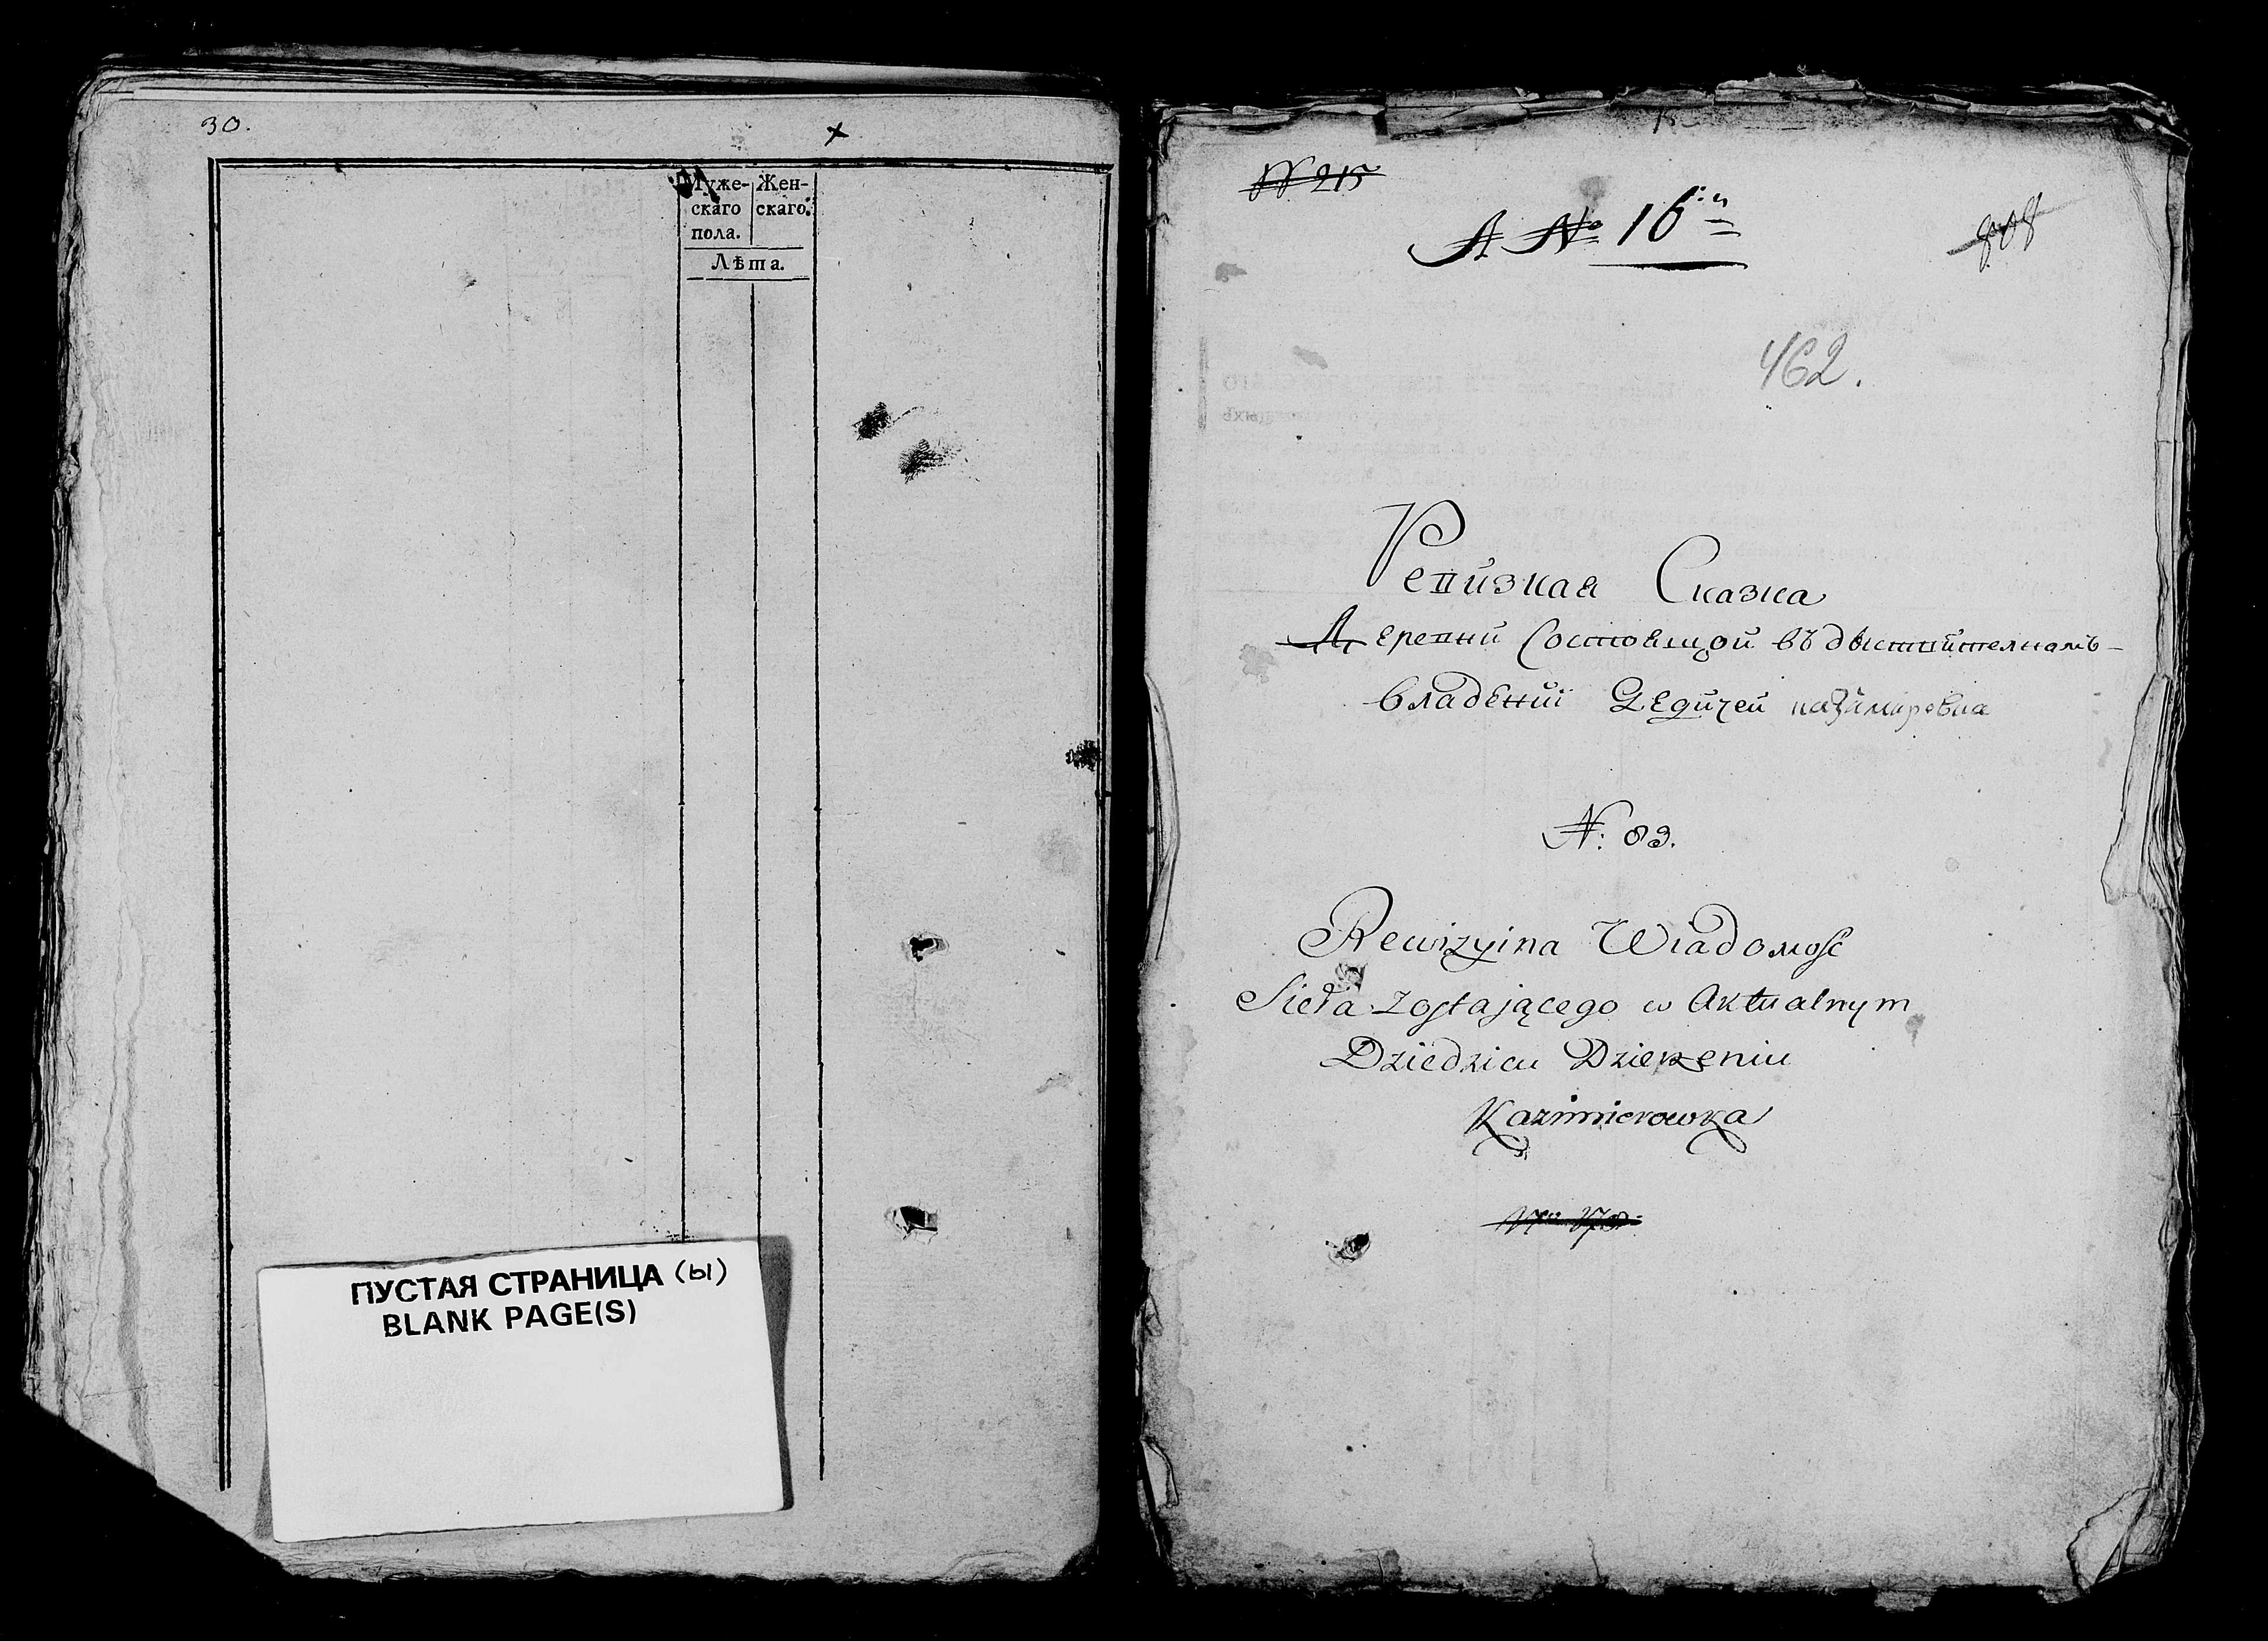 30.
Муже- Жен-
скаго скаго.
пола.
Лѣта.
ПУСТАЯ СТРАНИЦА (ы)
BLANK PAGE(S)
№ 215
А № 16:й
808
462.
Ревизкая Сказка
Деревни Состоящой въ дыствителномъ
владѣнии Дедичей казимировка
N: 83.
Rewizyina Wiadomość
Sieła zostającego w Aktualnym
Dziedzicu Dzierzeniu
Kazimierowka